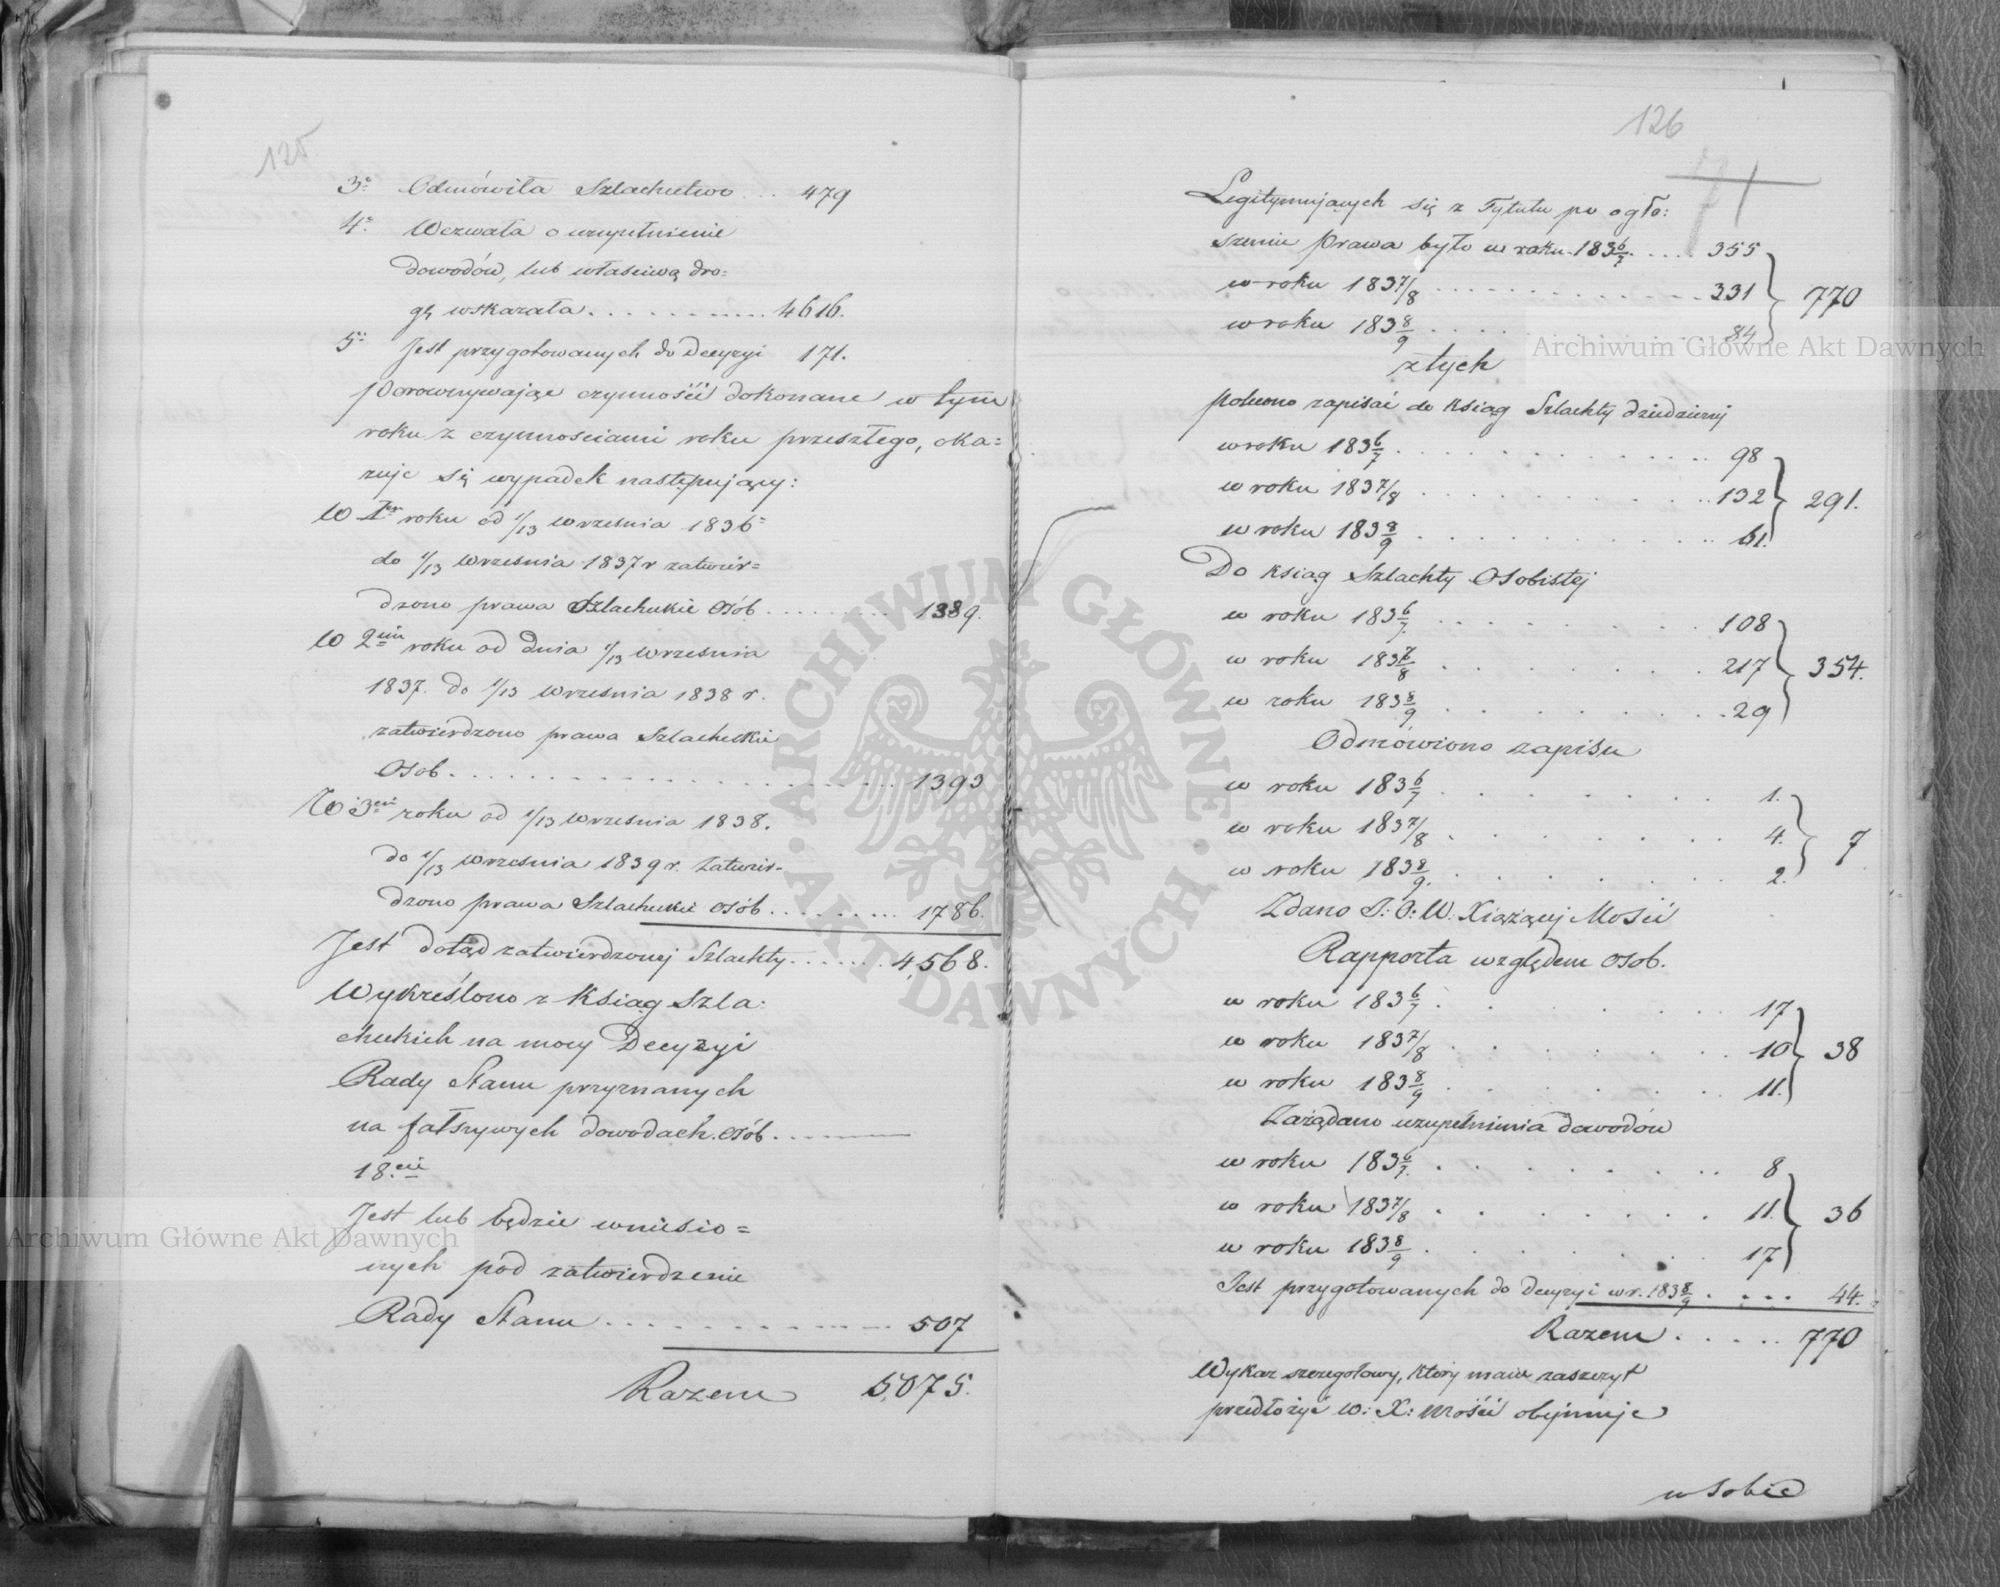 125
3º Odmówiła Szlachectwo ... 479
4º Wezwała o uzupełnienie
dowodów, lub właściwą dro=
gę wskazała ........... 4616.
5º Jest przygotowanych do Decyzyi 171.
porównywając czynności dokonane w tym
roku z czynnościami roku przeszłego, oka=
zuje się wypadek następujący:
W Iym roku od 1/13 Września 1836=
do 1/13 Września 1837 r zatwier=
dzono prawa Szlacheckie osób .......... 1389.
W 2gim roku od dnia 1/13 Września
1837. do 1/13 Września 1838 r.
zatwierdzono prawa Szlacheckie
Osob ...................... 1393
W 3cim roku od 1/13 Września 1838.
do 1/13 Września 1839 r. Zatwier=
dzono prawa Szlacheckie osób ......... 1786.
Jest dotąd zatwierdzonej Szlachty ....... 4,568.
Wykreślono z Ksiąg Szla:
checkich na mocy Decyzyi
Rady Stanu przyznanych
na fałszywych dowodach. osób.
18.cie
Jest lub będzie wniesio=
nych pod zatwierdzenie
Rady Stanu ............ 507
Razem 5,075.
126
71
Legitymujących się z Tytułu po ogło:
szeniu Prawa było w roku 1836/7 .... 355
w roku 1837/8 ............. 331 } 770
w roku 1838/9 ............. 84
z tych
polecono zapisać do Ksiąg Szlachty dziedzicznej
w roku 1836/7 ............ 98
w roku 1837/8 ............ 132 } 291.
w roku 1838/9 ............ 61.
Do Ksiąg Szlachty Osobistej
w roku 1836/7. ......... 108
w roku 1837/8 ......... 217 } 354.
w roku 1838/9 ......... 29
Odmówiono zapisu
w roku 1836/7 ........ 1.
w roku 1837/8 ........ 4. } 7
w roku 1838/9. ........ 2.
Zdano J: O: W. Xiążęcej Mości
Rapporta względem osob.
w roku 1836/7 ........ 17
w roku 1837/8 ........ 10 } 38
w roku 1838/9 ........ 11.
Zażądano uzupełnienia dowodów
w roku 1836/7. ........ 8
w roku 1837/8 ........ 11. } 36
w roku 1838/9 ........ 17
Jest przygotowanych do Decyzyi w r. 1838/9 .... 44.
Razem ..... 770
Wykaz szczegołowy, który mam zaszczyt
przedłożyć W: X: Mości obejmuje
w sobie
Archiwum Główne Akt Dawnych
Archiwum Główne Akt Dawnych
ARCHIWUM GŁÓWNE • AKT DAWNYCH •